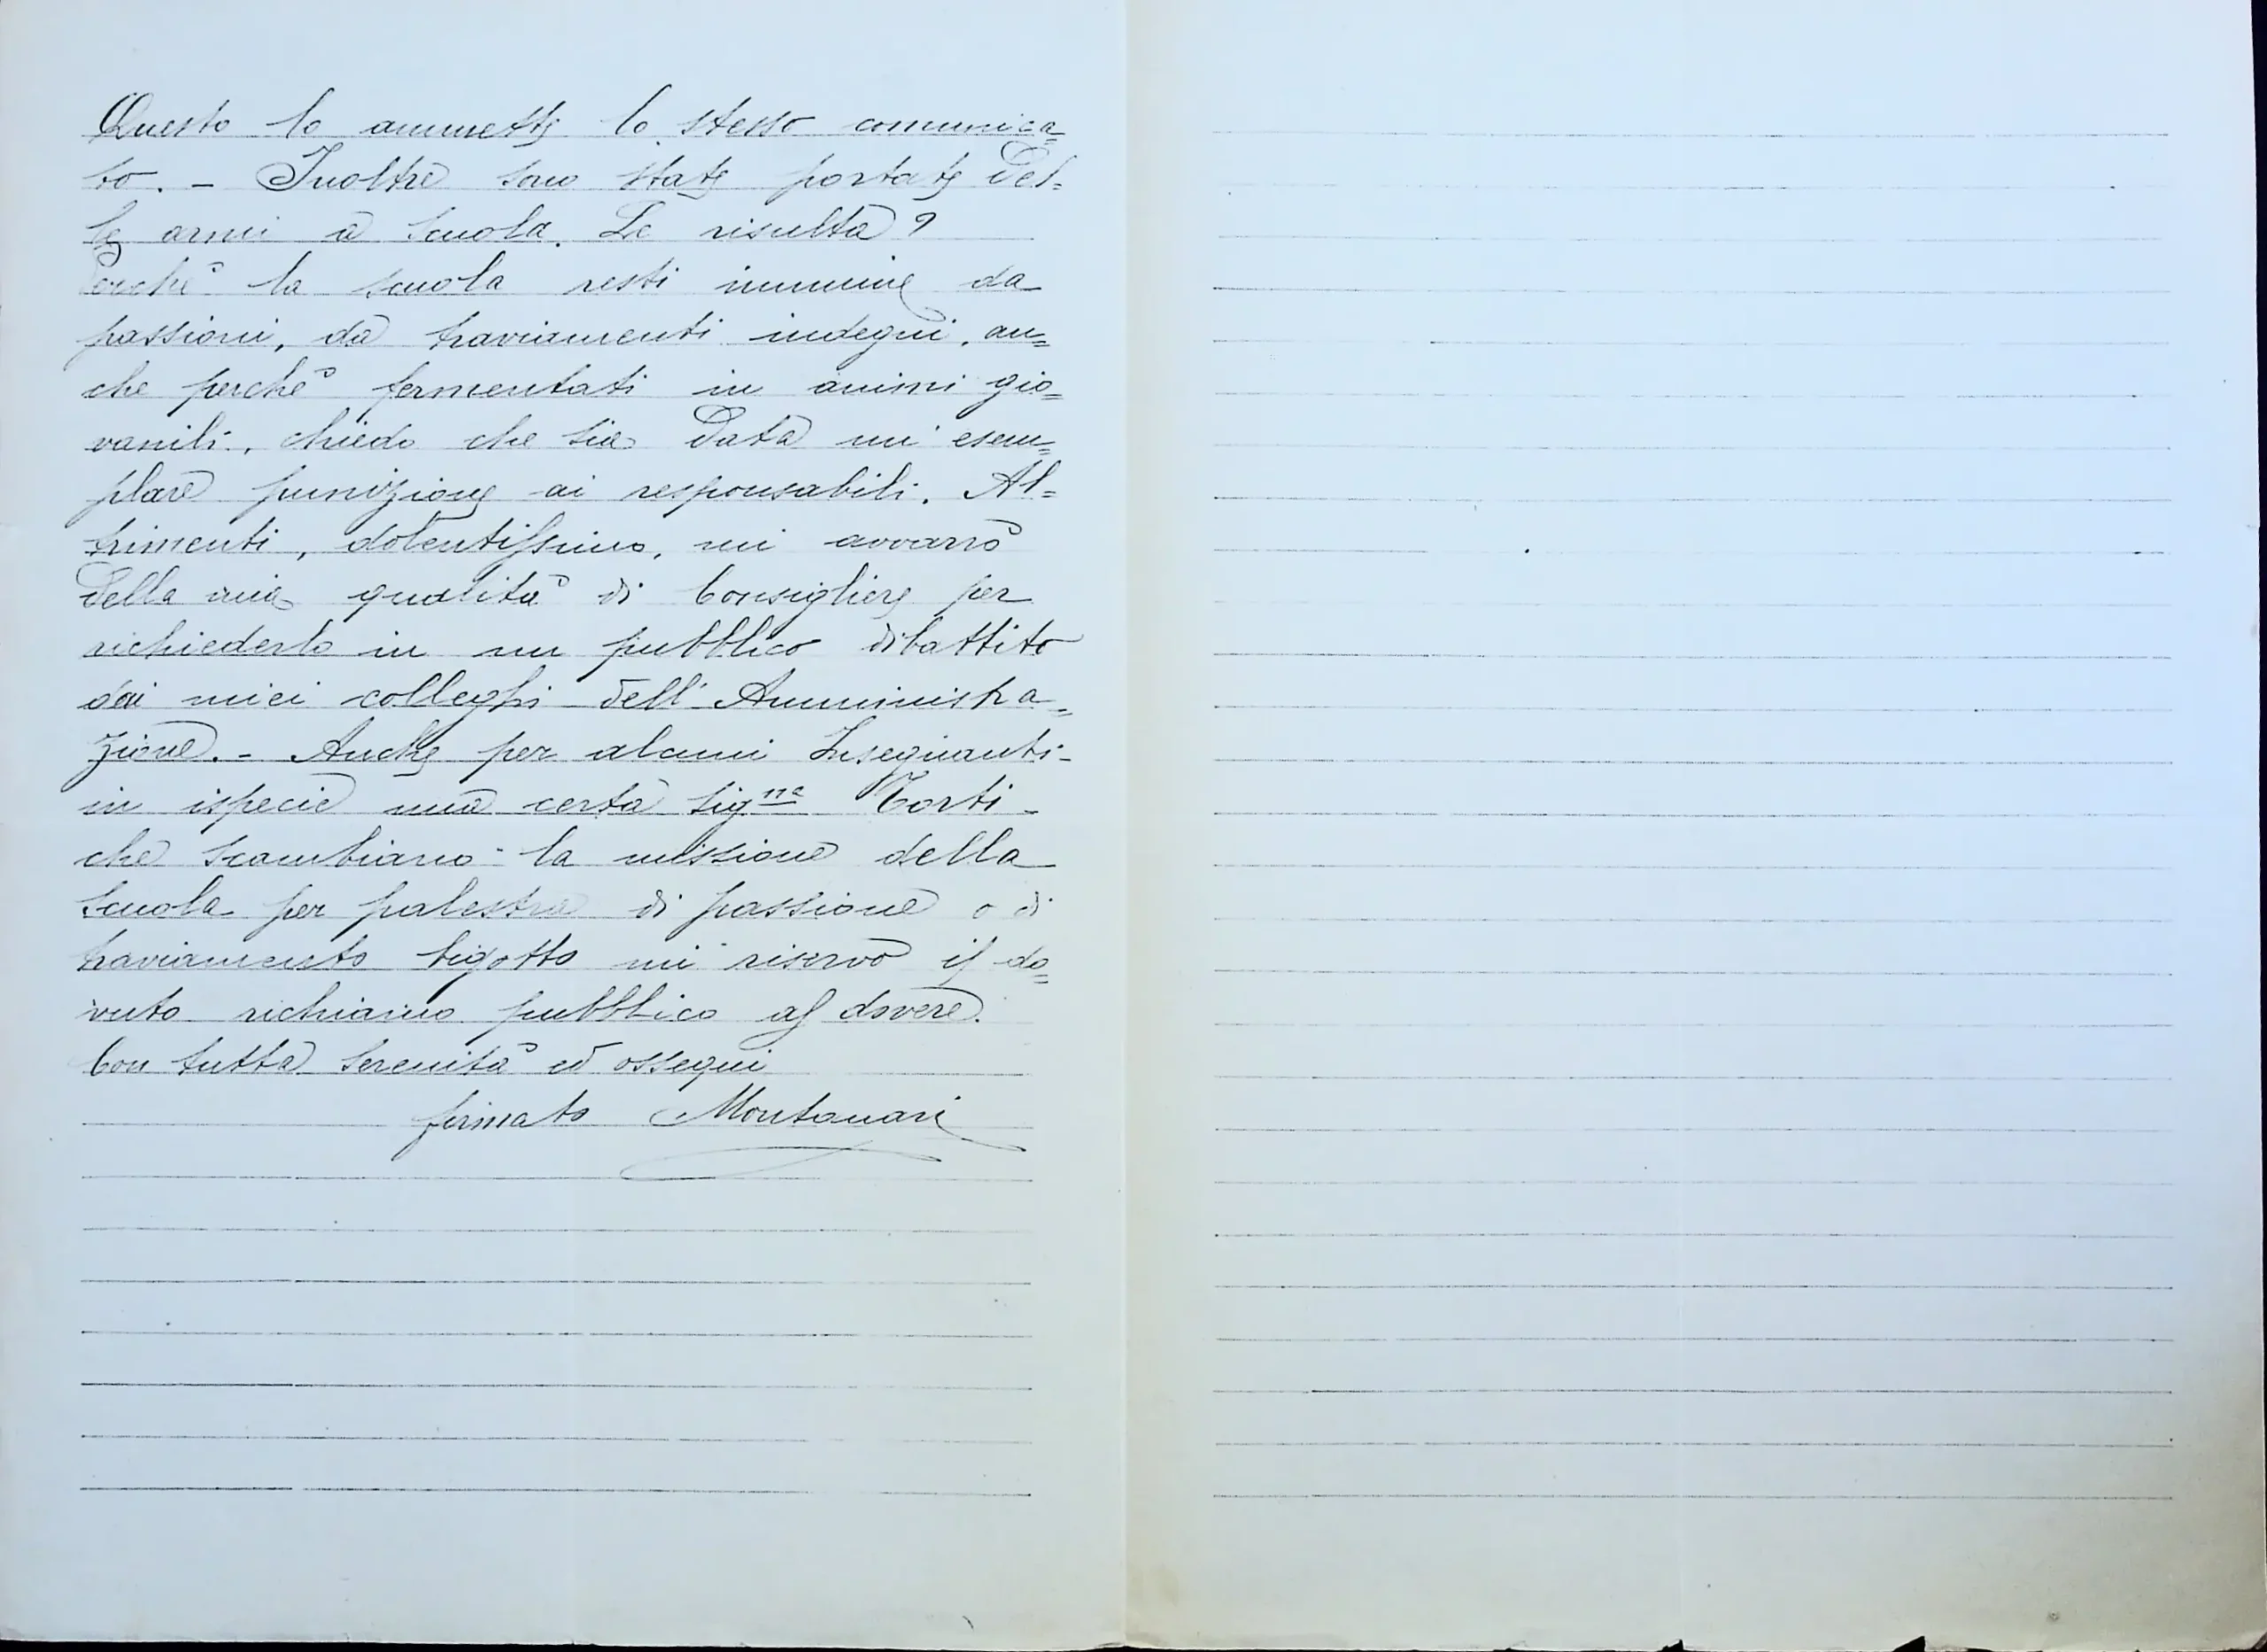 Questo lo ammette lo stesso comunica=
to. - Inoltre sono state portate del=
le armi a scuola. Le risulta?
Perchè la scuola resti immune da
passioni, da traviamenti indegni, an=
che perchè fermentati in animi gio=
vanili, chiedo che sia data un' esem=
plare punizione ai responsabili. Al=
trimenti, dolentissimo, mi avvarrò
della mia qualità di Consigliere per
richiederlo in un pubblico dibattito
dai miei colleghi dell' Amministra=
zione. - Anche per alcuni Insegnanti -
in ispecie una certa Sig.na Torti -
che scambiano la missione della
scuola per palestra di passione o di
traviamento bigotto mi riservo il do=
vuto richiamo pubblico al dovere.
Con tutta serenità ed ossequi
firmato Montanari